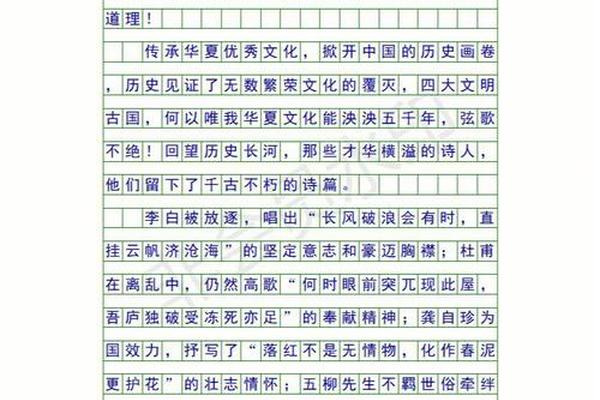 道理！
传承华夏优秀文化，掀开中国的历史画卷
，历史见证了无数繁荣文化的覆灭，四大文明
古国，何以唯我华夏文化能泱泱五千年，弦歌
不绝！回望历史长河，那些才华横溢的诗人，
他们留下了千古不朽的诗篇。
李白被放逐，唱出“长风破浪会有时，直
挂云帆济沧海”的坚定意志和豪迈胸襟；杜甫
在离乱中，仍然高歌“何时眼前突兀现此屋，
吾庐独破受冻死亦足”的奉献精神；龚自珍为
国效力，抒写了“落红不是无情物，化作春泥
更护花”的壮志情怀；五柳先生不羁世俗牵绊
非会员水印